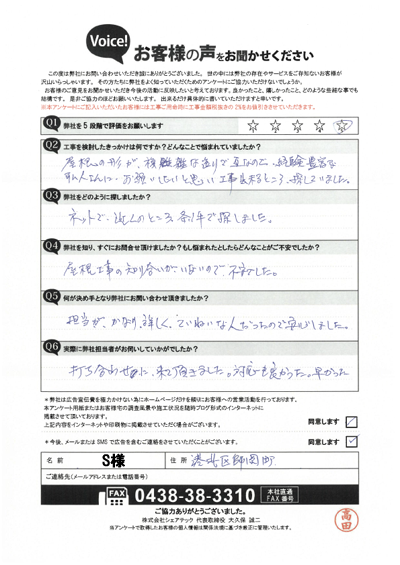 Voice!
お客様の声をお聞かせください
この度は弊社にお問い合わせいただき誠にありがとうございました。世の中には弊社の存在やサービスをご存知ないお客様が
沢山いらっしゃいます。その方たちに弊社をよく知っていただくためのアンケートにご協力いただけないでしょうか。
お客様のご意見をお聞かせいただき今後の活動に反映したいと考えております。良かったこと、嬉しかったこと、どのような些細な事でも
結構です。是非ご協力のほどお願いいたします。出来るだけ具体的に書いていただけますと幸いです。
※本アンケートにご記入いただいたお客様には工事ご発注時に工事金額税抜きの
Q1 弊社を5段階で評価をお願いします
☆ ☆ ☆ ☆ ☆
Q2 工事を検討したきっかけは何ですか?どんなことで悩まれていましたか?
屋根の形が、複雑な造りで
Q3 弊社をどのように探しましたか?
ネットで、近くのところ条件で探しました。
Q4 弊社を知り、すぐにお問合せ頂けましたか?もし悩まれたとしたらどんなことがご不安でしたか?
屋根工事の知り合いがいないので、不安でした。
Q5 何が決め手となり弊社にお問い合わせ頂きましたか?
担当が、かなり詳しく、ていねいな人だったので安心しました。
Q6 実際に弊社担当者がお伺いしていかがでしたか?
打ち合わせ 来て頂きました。対応も良かった。早かった
*弊社は広告宣伝費を極力かけない為にホームページだけを頼りにお客様への営業活動を行っております。
本アンケート用紙またはお客様宅の調査風景や施工状況を随時ブログ形式のインターネットに
掲載させて頂いております。
上記内容をインターネットや印刷物に掲載させていただく場合がございます。
同意します
*今後、メールまたはSMSで広告を含むご連絡をさせていただくことがございます。
同意します
名前 S様 住所 港北区師岡町
ご連絡先(メールアドレスまたは電話番号)
FAX 0438-38-3310 本社直通 FAX番号
ご協力ありがとうございました。
株式会社シェアテック 代表取締役 大久保 誠二
当アンケートで取得したお客様の個人情報は関係法規に基づき厳正に管理いたします。
高田